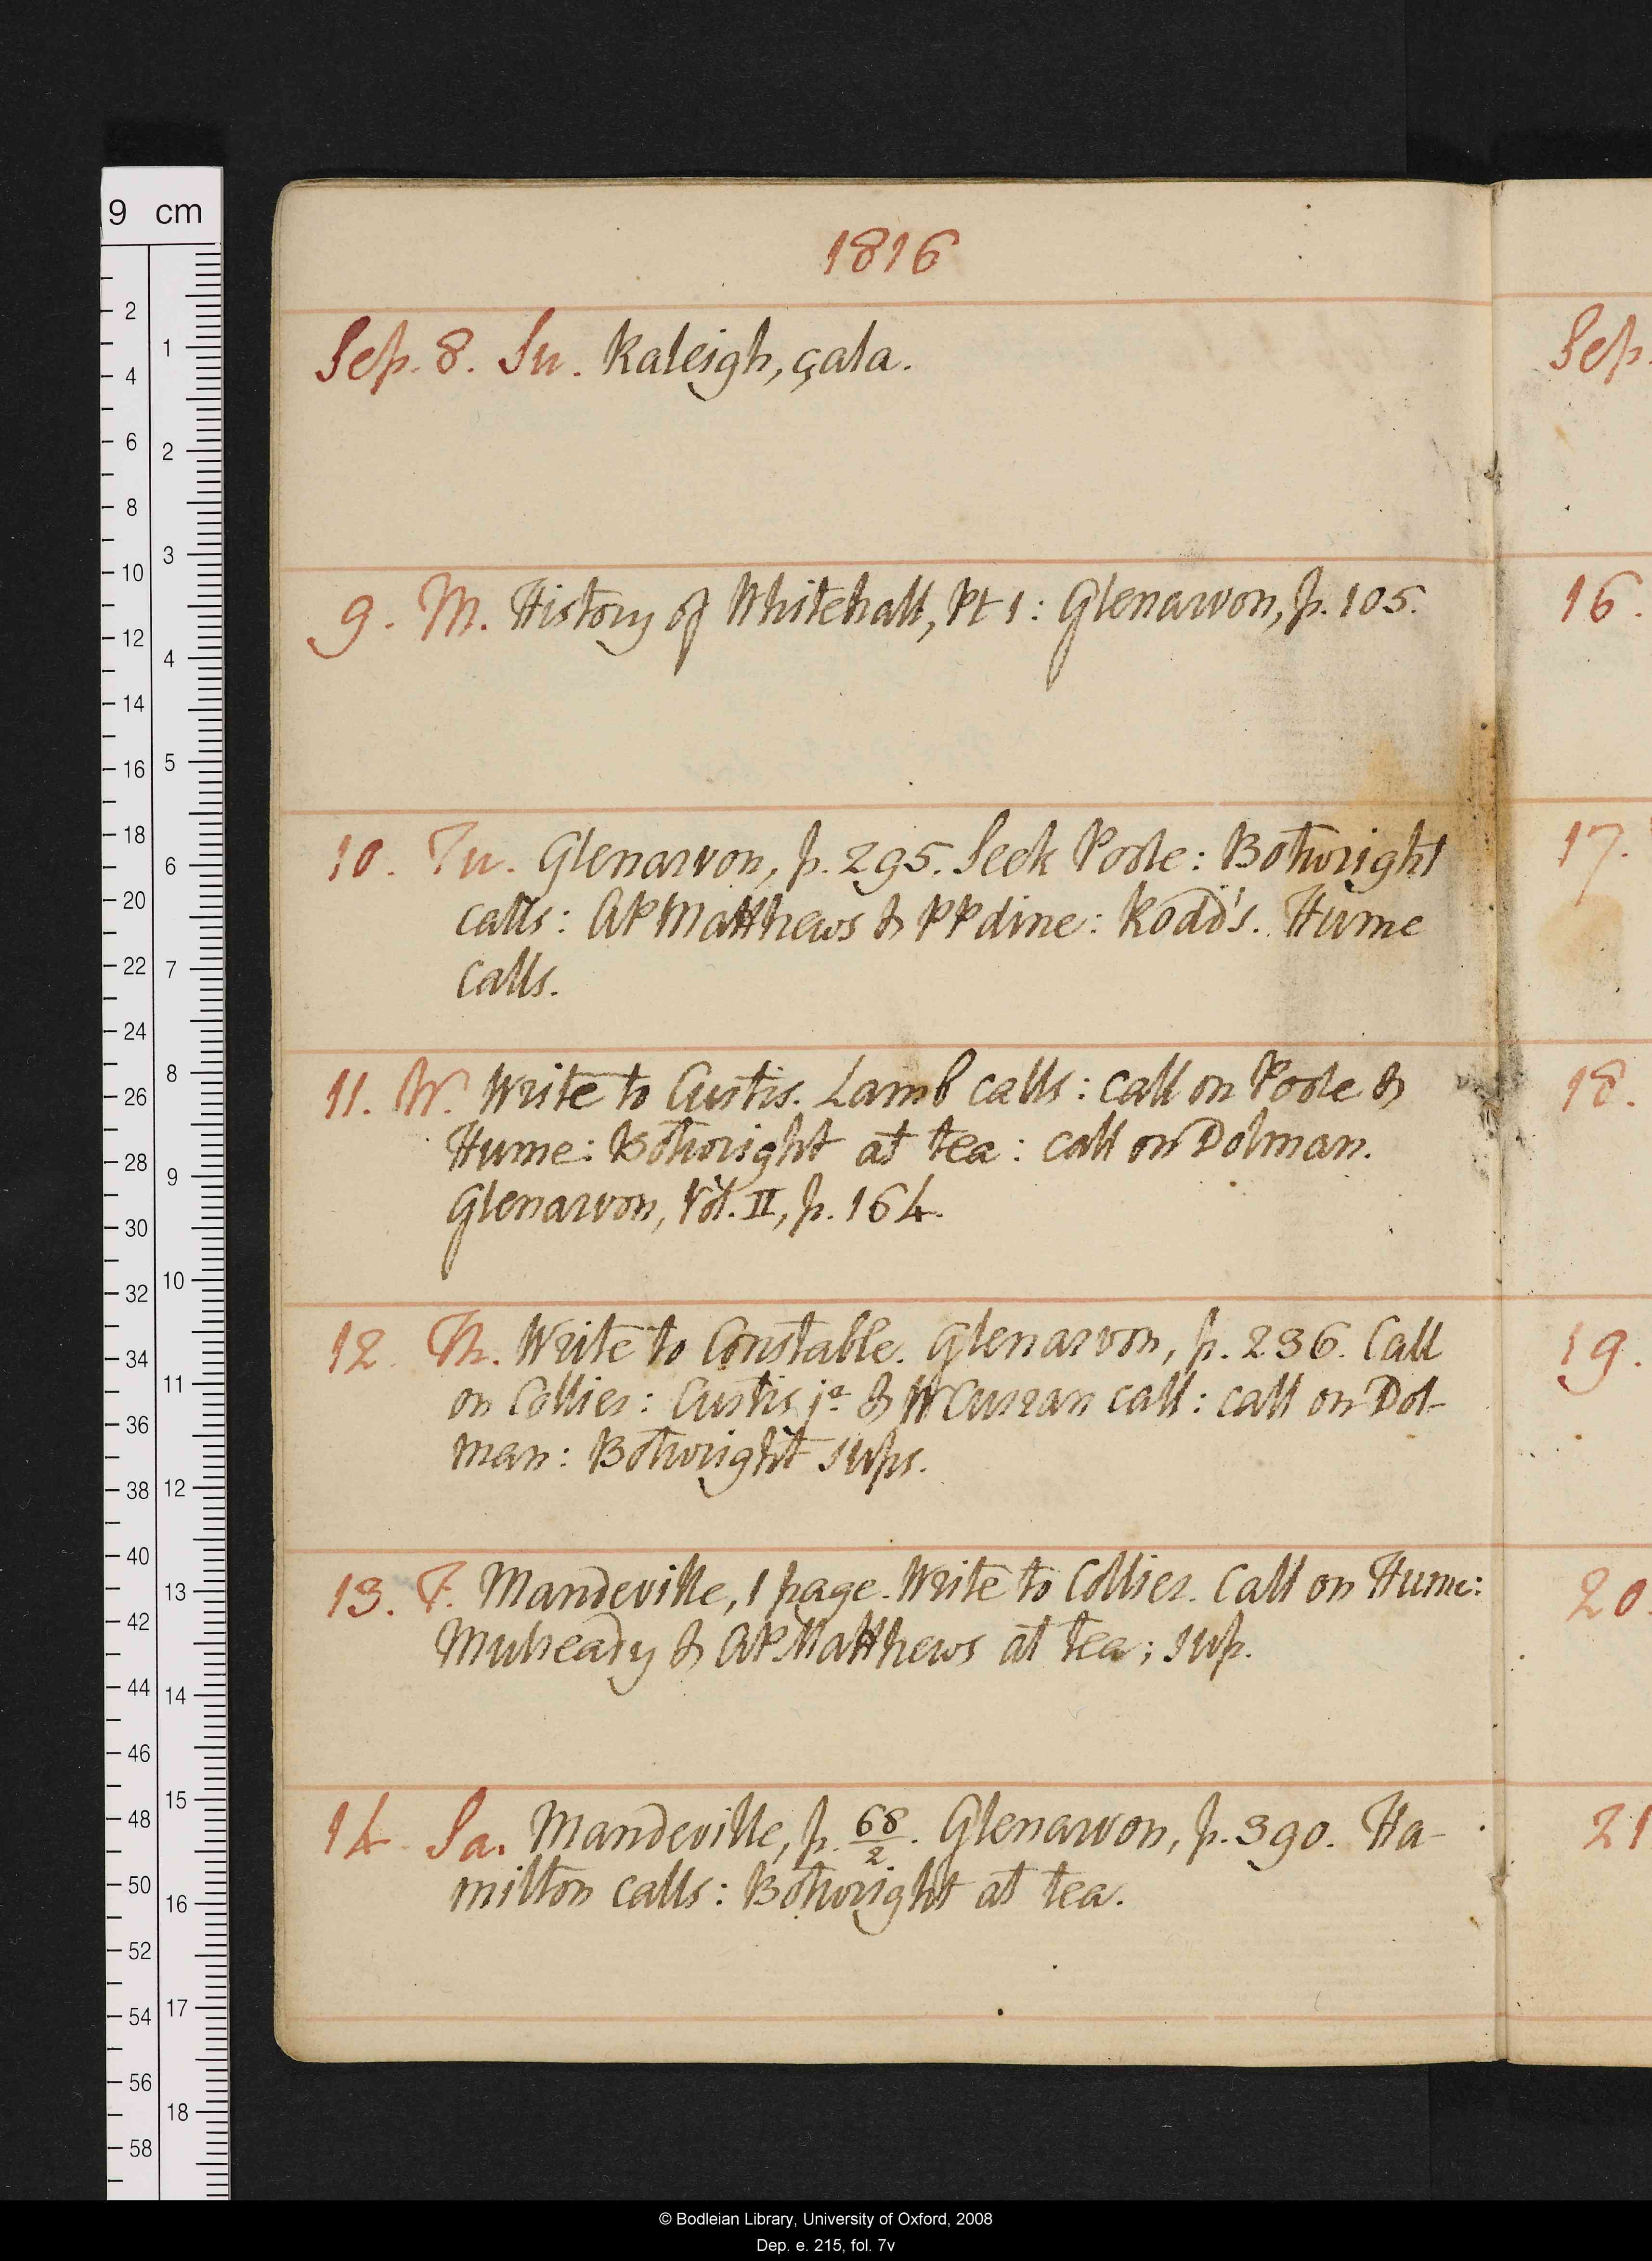 1816
Sep. 8. Su. Raleigh, çala.
9. M. History of Whitehall, Pt 1: Glenarvon, p. 105.
10. Tu. Glenarvon, p. 295. Seek Poole: Botwright
calls: AP Matthews & PP dine: Rodd's. Hume
calls.
11. W. Write to Curtis. Lamb calls: call on Poole &
Hume: Botwright at tea: call on Dolman.
Glenarvon, Vol. II, p. 164.
12. Th. Write to Constable. Glenarvon, p. 236. Call
on Collier: Curtis jr & W Curran call: call on Dol-
man: Botwright sups.
13. F. Mandeville, 1 page. Write to Collier. Call on Hume:
Mulready & AP Matthews at tea; sup.
14. Sa. Mandeville, p. 68/2. Glenarvon, p. 390. Ha-
milton calls: Botwright at tea.
Sep.
16.
17.
18.
19.
20.
21
9 cm
2
4
6
8
10
12
14
16
18
20
22
24
26
28
30
32
34
36
38
40
42
44
46
48
50
52
54
56
58
1
2
3
4
5
6
7
8
9
10
11
12
13
14
15
16
17
18
© Bodleian Library, University of Oxford, 2008
Dep. e. 215, fol. 7v